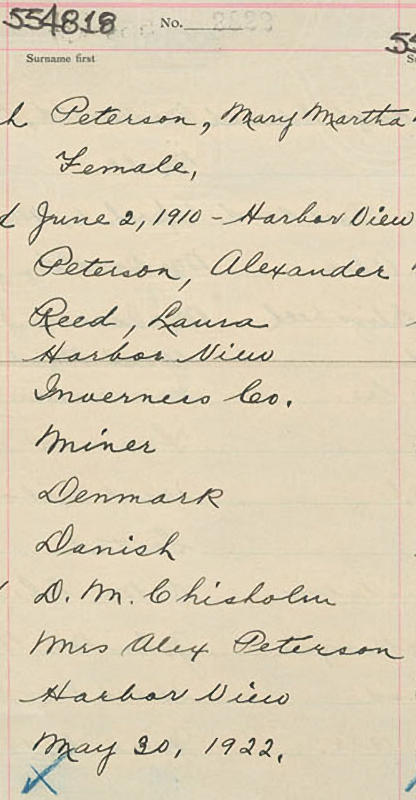 554818 No.
Surname first
Peterson, Mary Martha
Female,
June 2, 1910 - Harbor View
Peterson, Alexander
Reed, Laura
Harbor View
Inverness Co.
Miner
Denmark
Danish
D. M. Chisholm
Mrs Alex Peterson
Harbor View
May 30, 1922.